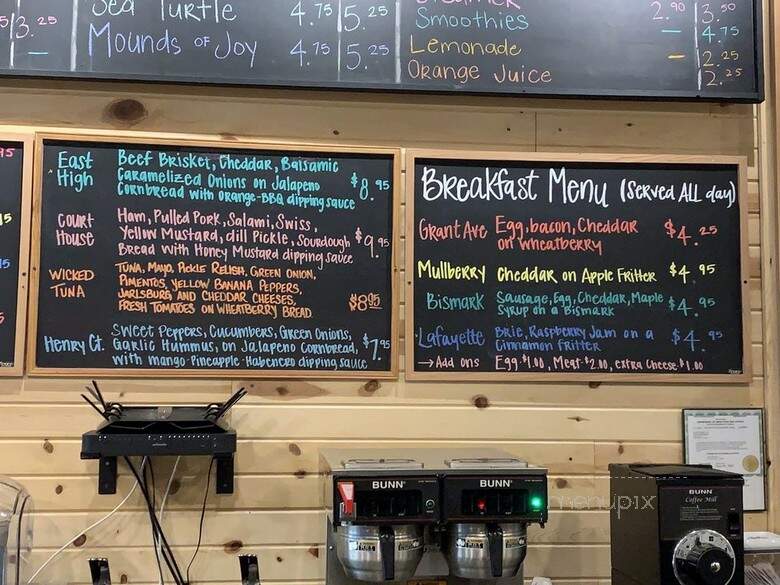 Sea Turtle 4.75 5.25
Mounds of Joy 4.75 5.25
3.25
2.90 3.50
Smoothies — 4.75
Lemonade — 2.25
Orange Juice 2.25
East High Beef Brisket, Cheddar, Balsamic
Caramelized Onions on Jalapeno
Cornbread with orange-BBQ dipping sauce $8.95
Court House Ham, Pulled Pork, Salami, Swiss,
Yellow Mustard, dill Pickle, Sourdough
Bread with Honey Mustard dipping sauce $9.95
Wicked Tuna Tuna, Mayo, Pickle Relish, Green Onion,
Pimentos, Yellow Banana Peppers,
Jarlsburg and Cheddar Cheeses,
Fresh Tomatoes on Wheatberry Bread $8.95
Henry Ct. Sweet Peppers, Cucumbers, Green Onions,
Garlic Hummus, on Jalapeno Cornbread,
with mango-Pineapple-Habenero dipping sauce $7.95
Breakfast Menu (Served ALL day)
Grant Ave Egg, bacon, Cheddar
on wheatberry $4.25
Mullberry Cheddar on Apple Fritter $4.95
Bismark Sausage, Egg, Cheddar, Maple
Syrup on a Bismark $4.95
Lafayette Brie, Raspberry Jam on a
Cinnamon Fritter $4.95
→ Add ons Egg $1.00, Meat $2.00, extra Cheese $1.00
BUNN
BUNN
BUNN
Coffee Mill
menupix